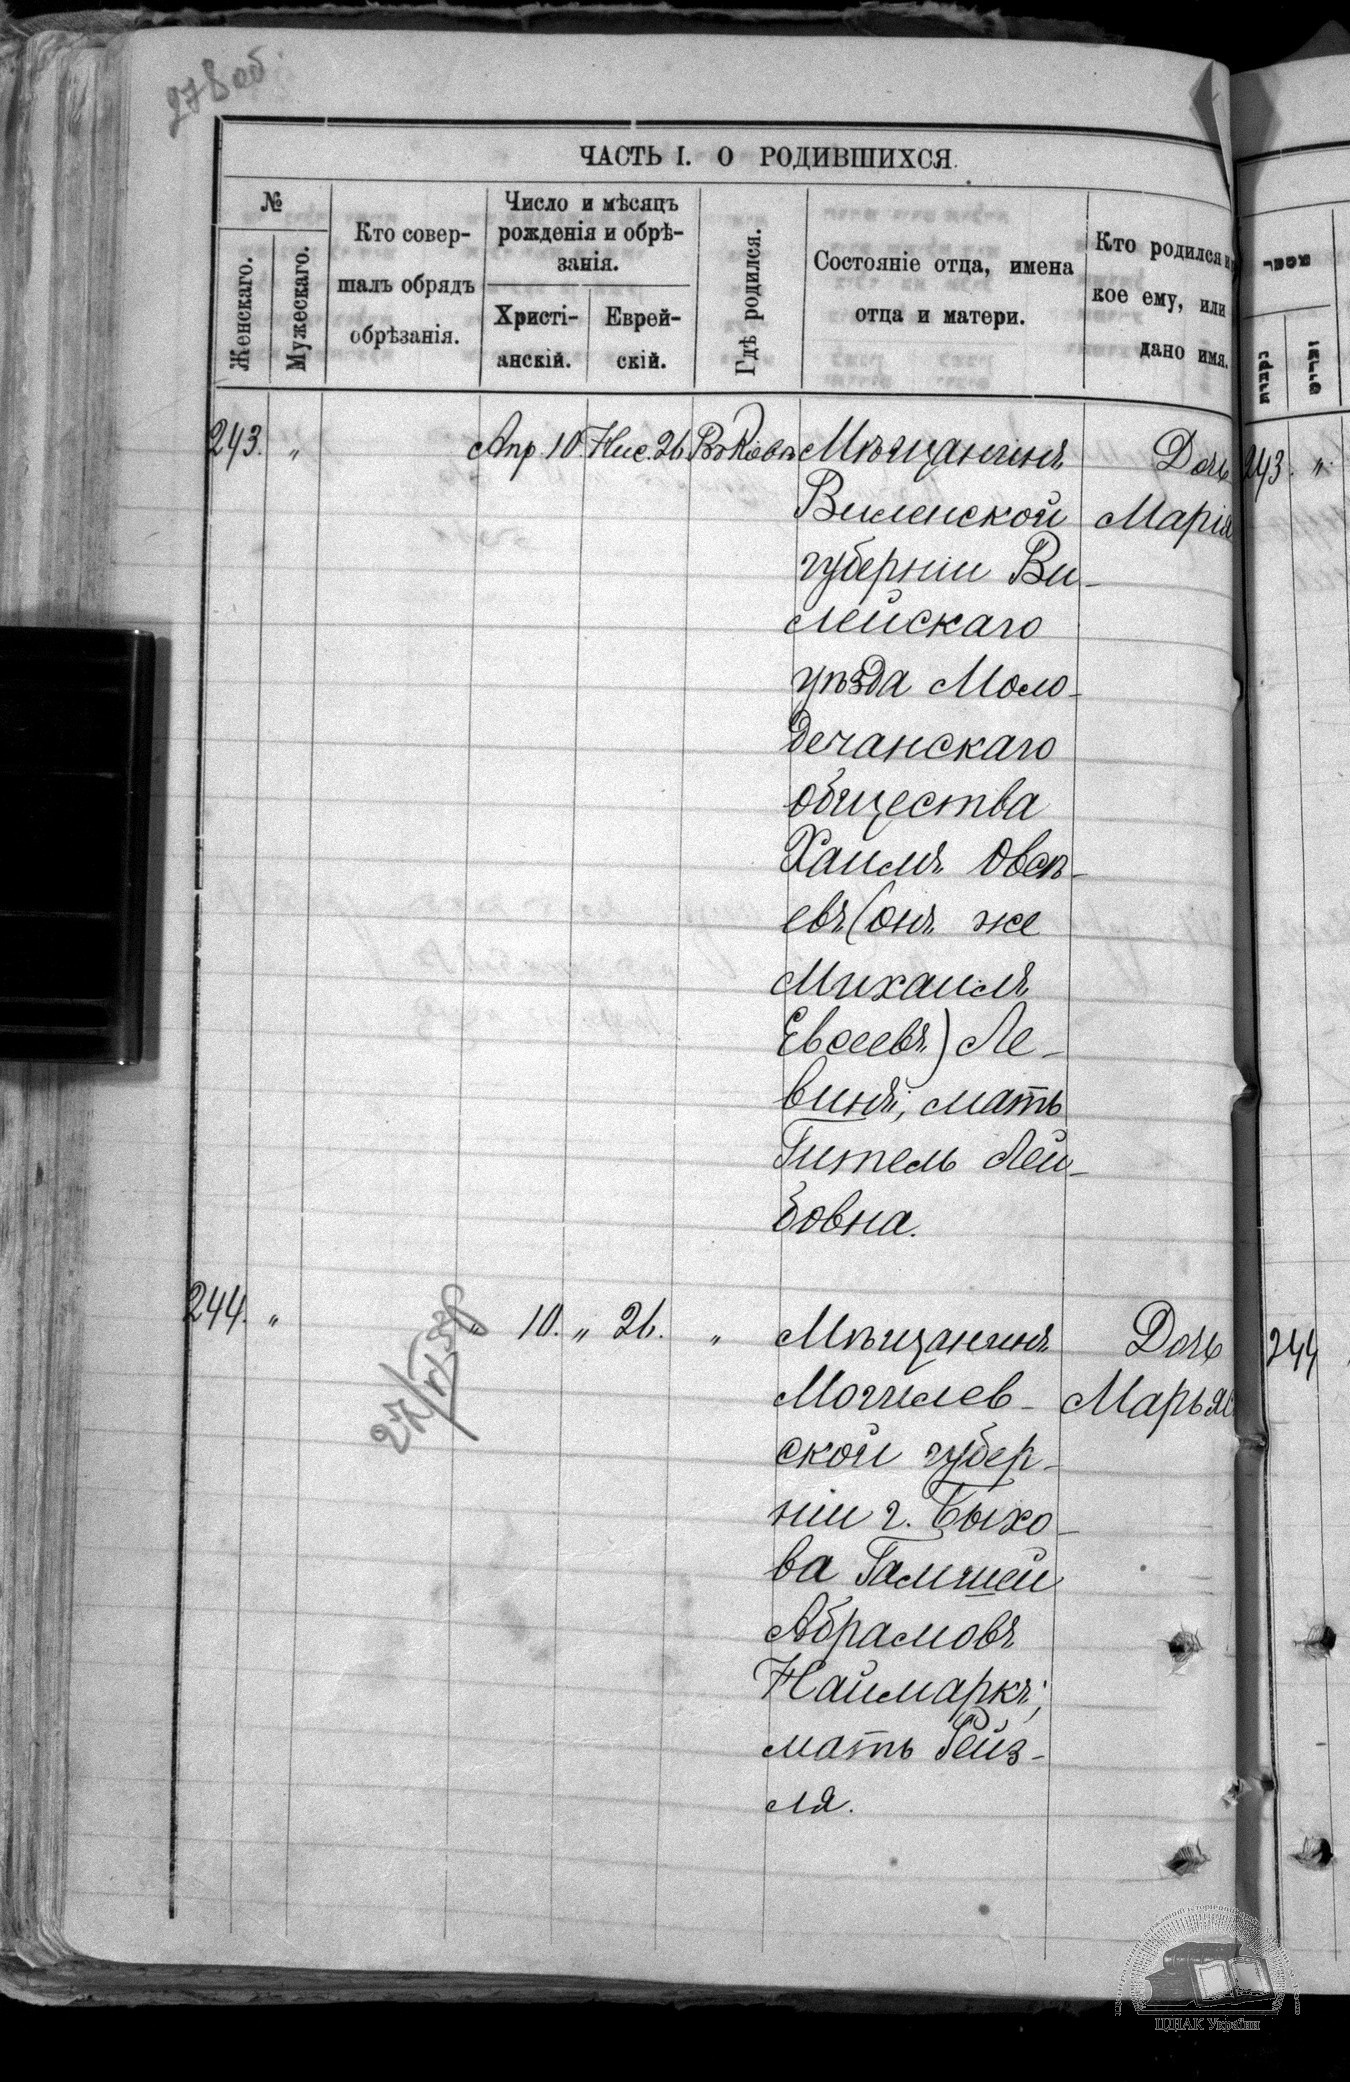 278об.
ЧАСТЬ I. О РОДИВШИХСЯ.
№
Женскаго.
Мужескаго.
Кто совер-
шалъ обрядъ
обрѣзанія.
Число и мѣсяцъ
рожденія и обрѣ-
занія.
Христі-
анскій.
Еврей-
скій.
Гдѣ родился.
Состояніе отца, имена
отца и матери.
Кто родился и
кое ему, или
дано имя.
243. " Апр. 10 Нис. 26 Въ Кіевѣ Мѣщанинъ Дочь 243. "
Виленской Марія
губерніи Ви-
лейскаго
уѣзда Моло-
дечанскаго
общества
Хаимъ Овсѣ-
евъ (онъ же
Михаилъ
Евсеевъ) Ле-
винъ; мать
Гитель Лей-
бовна.
244. " " 10. " 26. " Мѣщанинъ Дочь 244
Могилев- Марьяс
ской губер-
ніи г. Быхо-
ва Гамшей
Абрамовъ
Наймаркъ;
мать Рейз-
ля.
ЦДІАК України